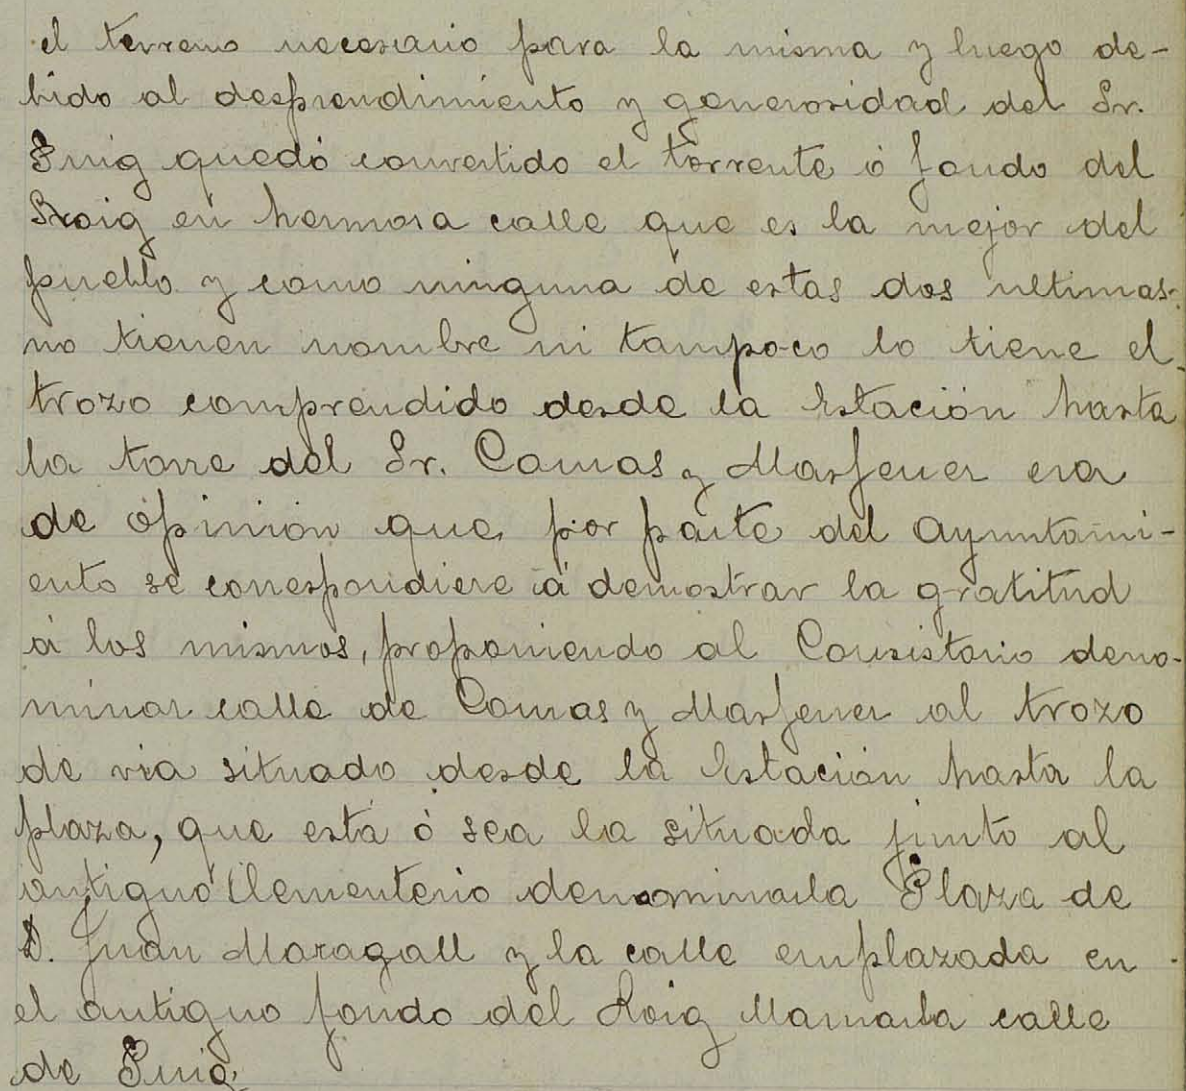 el terreno necesario para la misma y luego de-
bido al desprendimiento y generosidad del Sr.
Puig quedó convertido el torrente ó fondo del
Roig en hermosa calle que es la mejor del
pueblo y como ninguna de estas dos ultimas
no tienen nombre ni tampoco lo tiene el
trozo comprendido desde la Estación hasta
la torre del Sr. Comas y Masferrer era
de opinión que por parte del Ayuntami-
ento se correspondiere á demostrar la gratitud
á los mismos, proponiendo al Consistorio deno-
minar calle de Comas y Masferrer al trozo
de via situado desde la Estación hasta la
plaza, que esta ó sea la situada junto al
antiguo Clementerio denominarla Plaza de
D. Juan Maragall y la calle emplazada en
el antiguo fondo del Roig llamarla calle
de Puig.